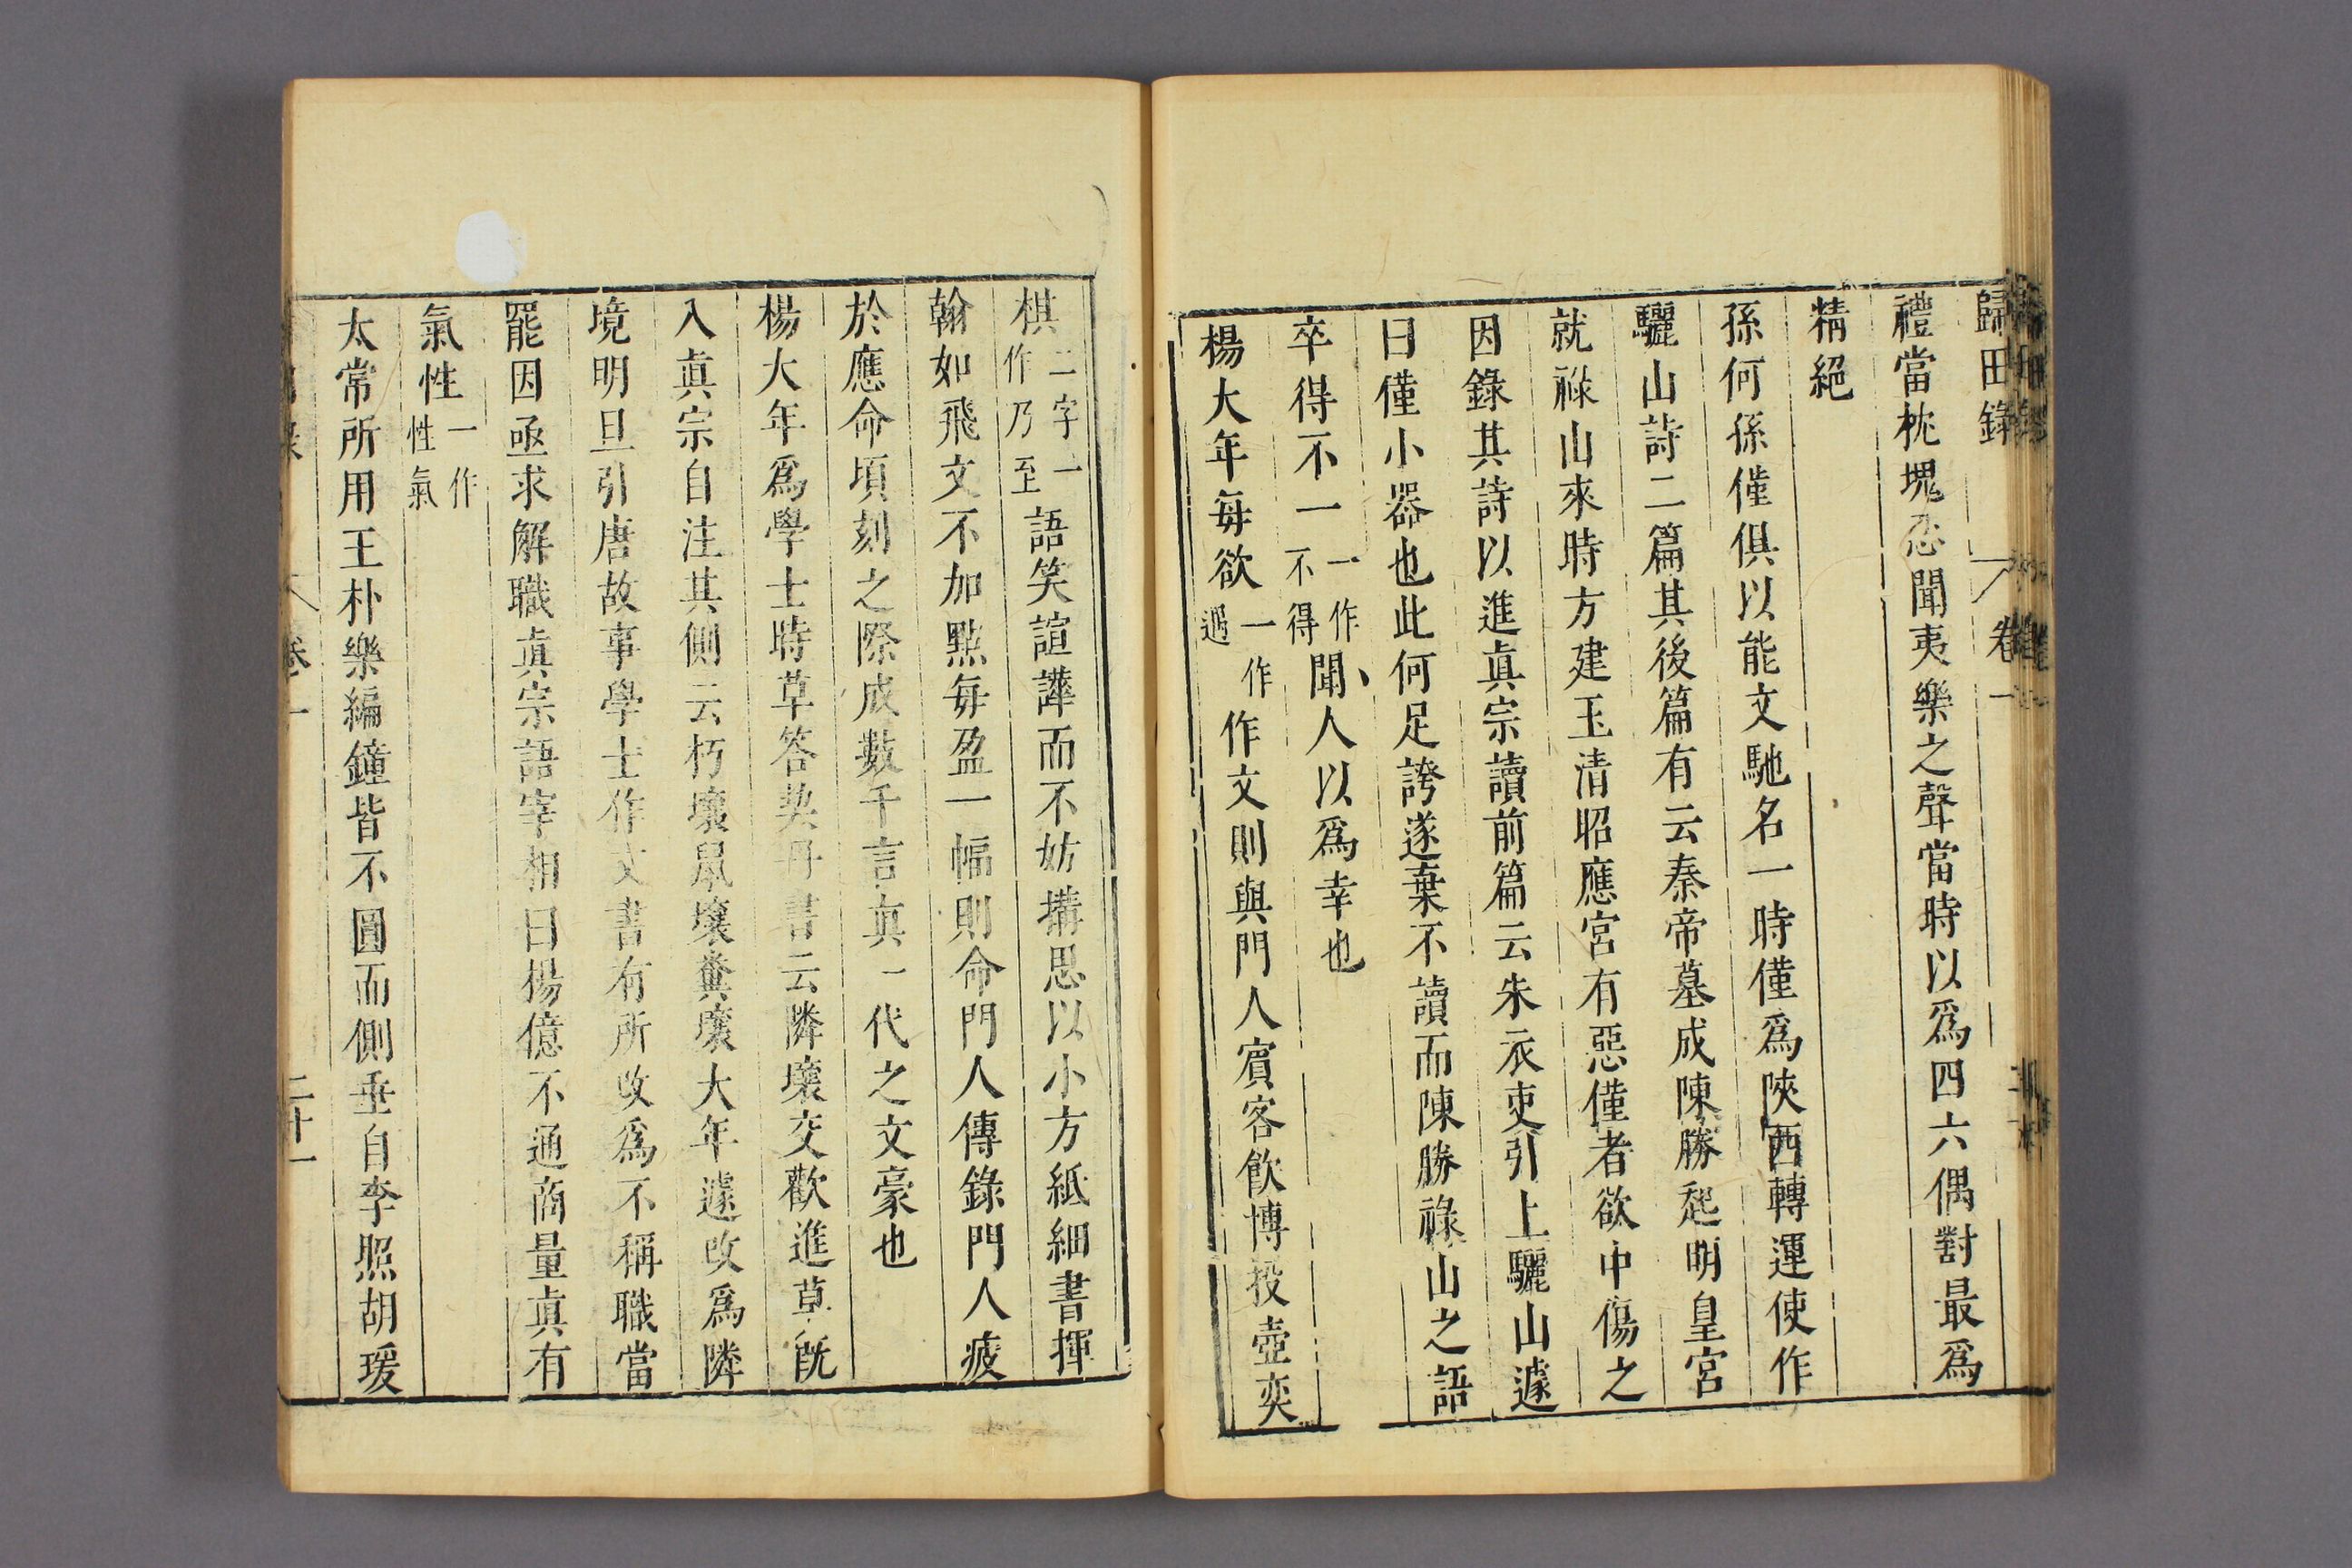 歸田錄 卷一
禮當枕塊忍聞夷樂之聲當時以爲四六偶對最爲
精絕
孫何孫僅俱以能文馳名一時僅爲陝西轉運使作
驪山詩二篇其後篇有云秦帝墓成陳勝起明皇宮
就祿山來時方建玉清昭應宮有惡僅者欲中傷之
因錄其詩以進眞宗讀前篇云朱衣吏引上驪山遽
曰僅小器也此何足誇遂棄不讀而陳勝祿山之語
卒得不一一作不得聞人以爲幸也
楊大年每欲一作遇作文則與門人賓客飲博投壺奕
棋二字一作乃至語笑諠譁而不妨搆思以小方紙細書揮
翰如飛文不加點每盈一幅則命門人傳錄門人疲
於應命頃刻之際成數千言眞一代之文豪也
楊大年爲學士時草答契丹書云隣壤交歡進草旣
入眞宗自注其側云朽壤鼠壤糞壤大年遽改爲隣
境明旦引唐故事學士作文書有所改爲不稱職當
罷因亟求解職眞宗語宰相曰楊億不通商量眞有
氣性一作性氣
太常所用王朴樂編鐘皆不圓而側垂自李照胡瑗
卷一 二十一